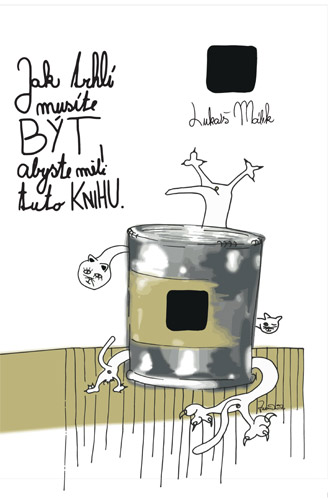 Jak trhlí
musíte
BÝT,
abyste měli
tuto KNIHU.
Lukáš Málek